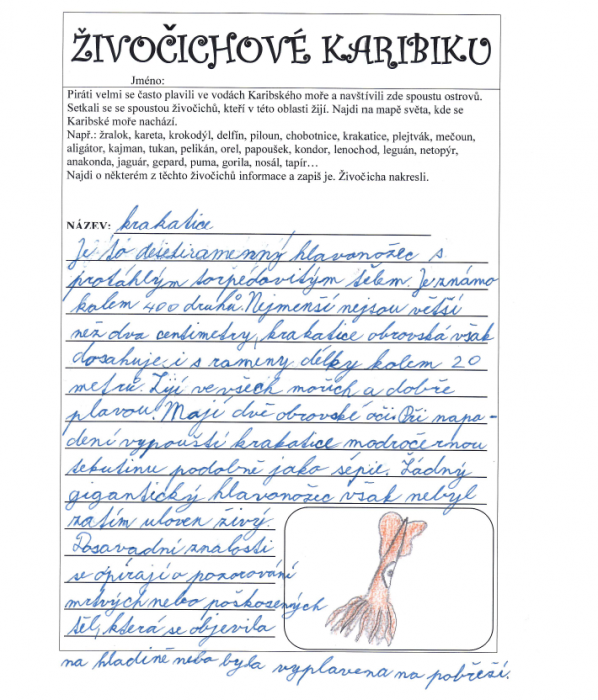 ŽIVOČICHOVÉ KARIBIKU
Jméno:
Piráti velmi se často plavili ve vodách Karibského moře a navštívili zde spoustu ostrovů.
Setkali se se spoustou živočichů, kteří v této oblasti žijí. Najdi na mapě světa, kde se
Karibské moře nachází.
Např.: žralok, kareta, krokodýl, delfín, piloun, chobotnice, krakatice, plejtvák, mečoun,
aligátor, kajman, tukan, pelikán, orel, papoušek, kondor, lenochod, leguán, netopýr,
anakonda, jaguár, gepard, puma, gorila, nosál, tapír...
Najdi o některém z těchto živočichů informace a zapiš je. Živočicha nakresli.
NÁZEV: krakatice
Je to desetiramenný hlavonožec s
protáhlým torpédovitým tělem. Je známo
kolem 400 druhů. Nejmenší nejsou větší
než dva centimetry, krakatice obrovská však
dosahuje i s rameny délky kolem 20
metrů. Žijí ve všech mořích a dobře
plavou. Mají dvě obrovské oči. Při napa-
dení vypouští krakatice modročernou
tekutinu podobně jako sépie. Žádný
gigantický hlavonožec však nebyl
zatím uloven živý.
Dosavadní znalosti
se opírají o pozorování
mrtvých nebo poškozených
těl, která se objevila
na hladině nebo byla vyplavena na pobřeží.